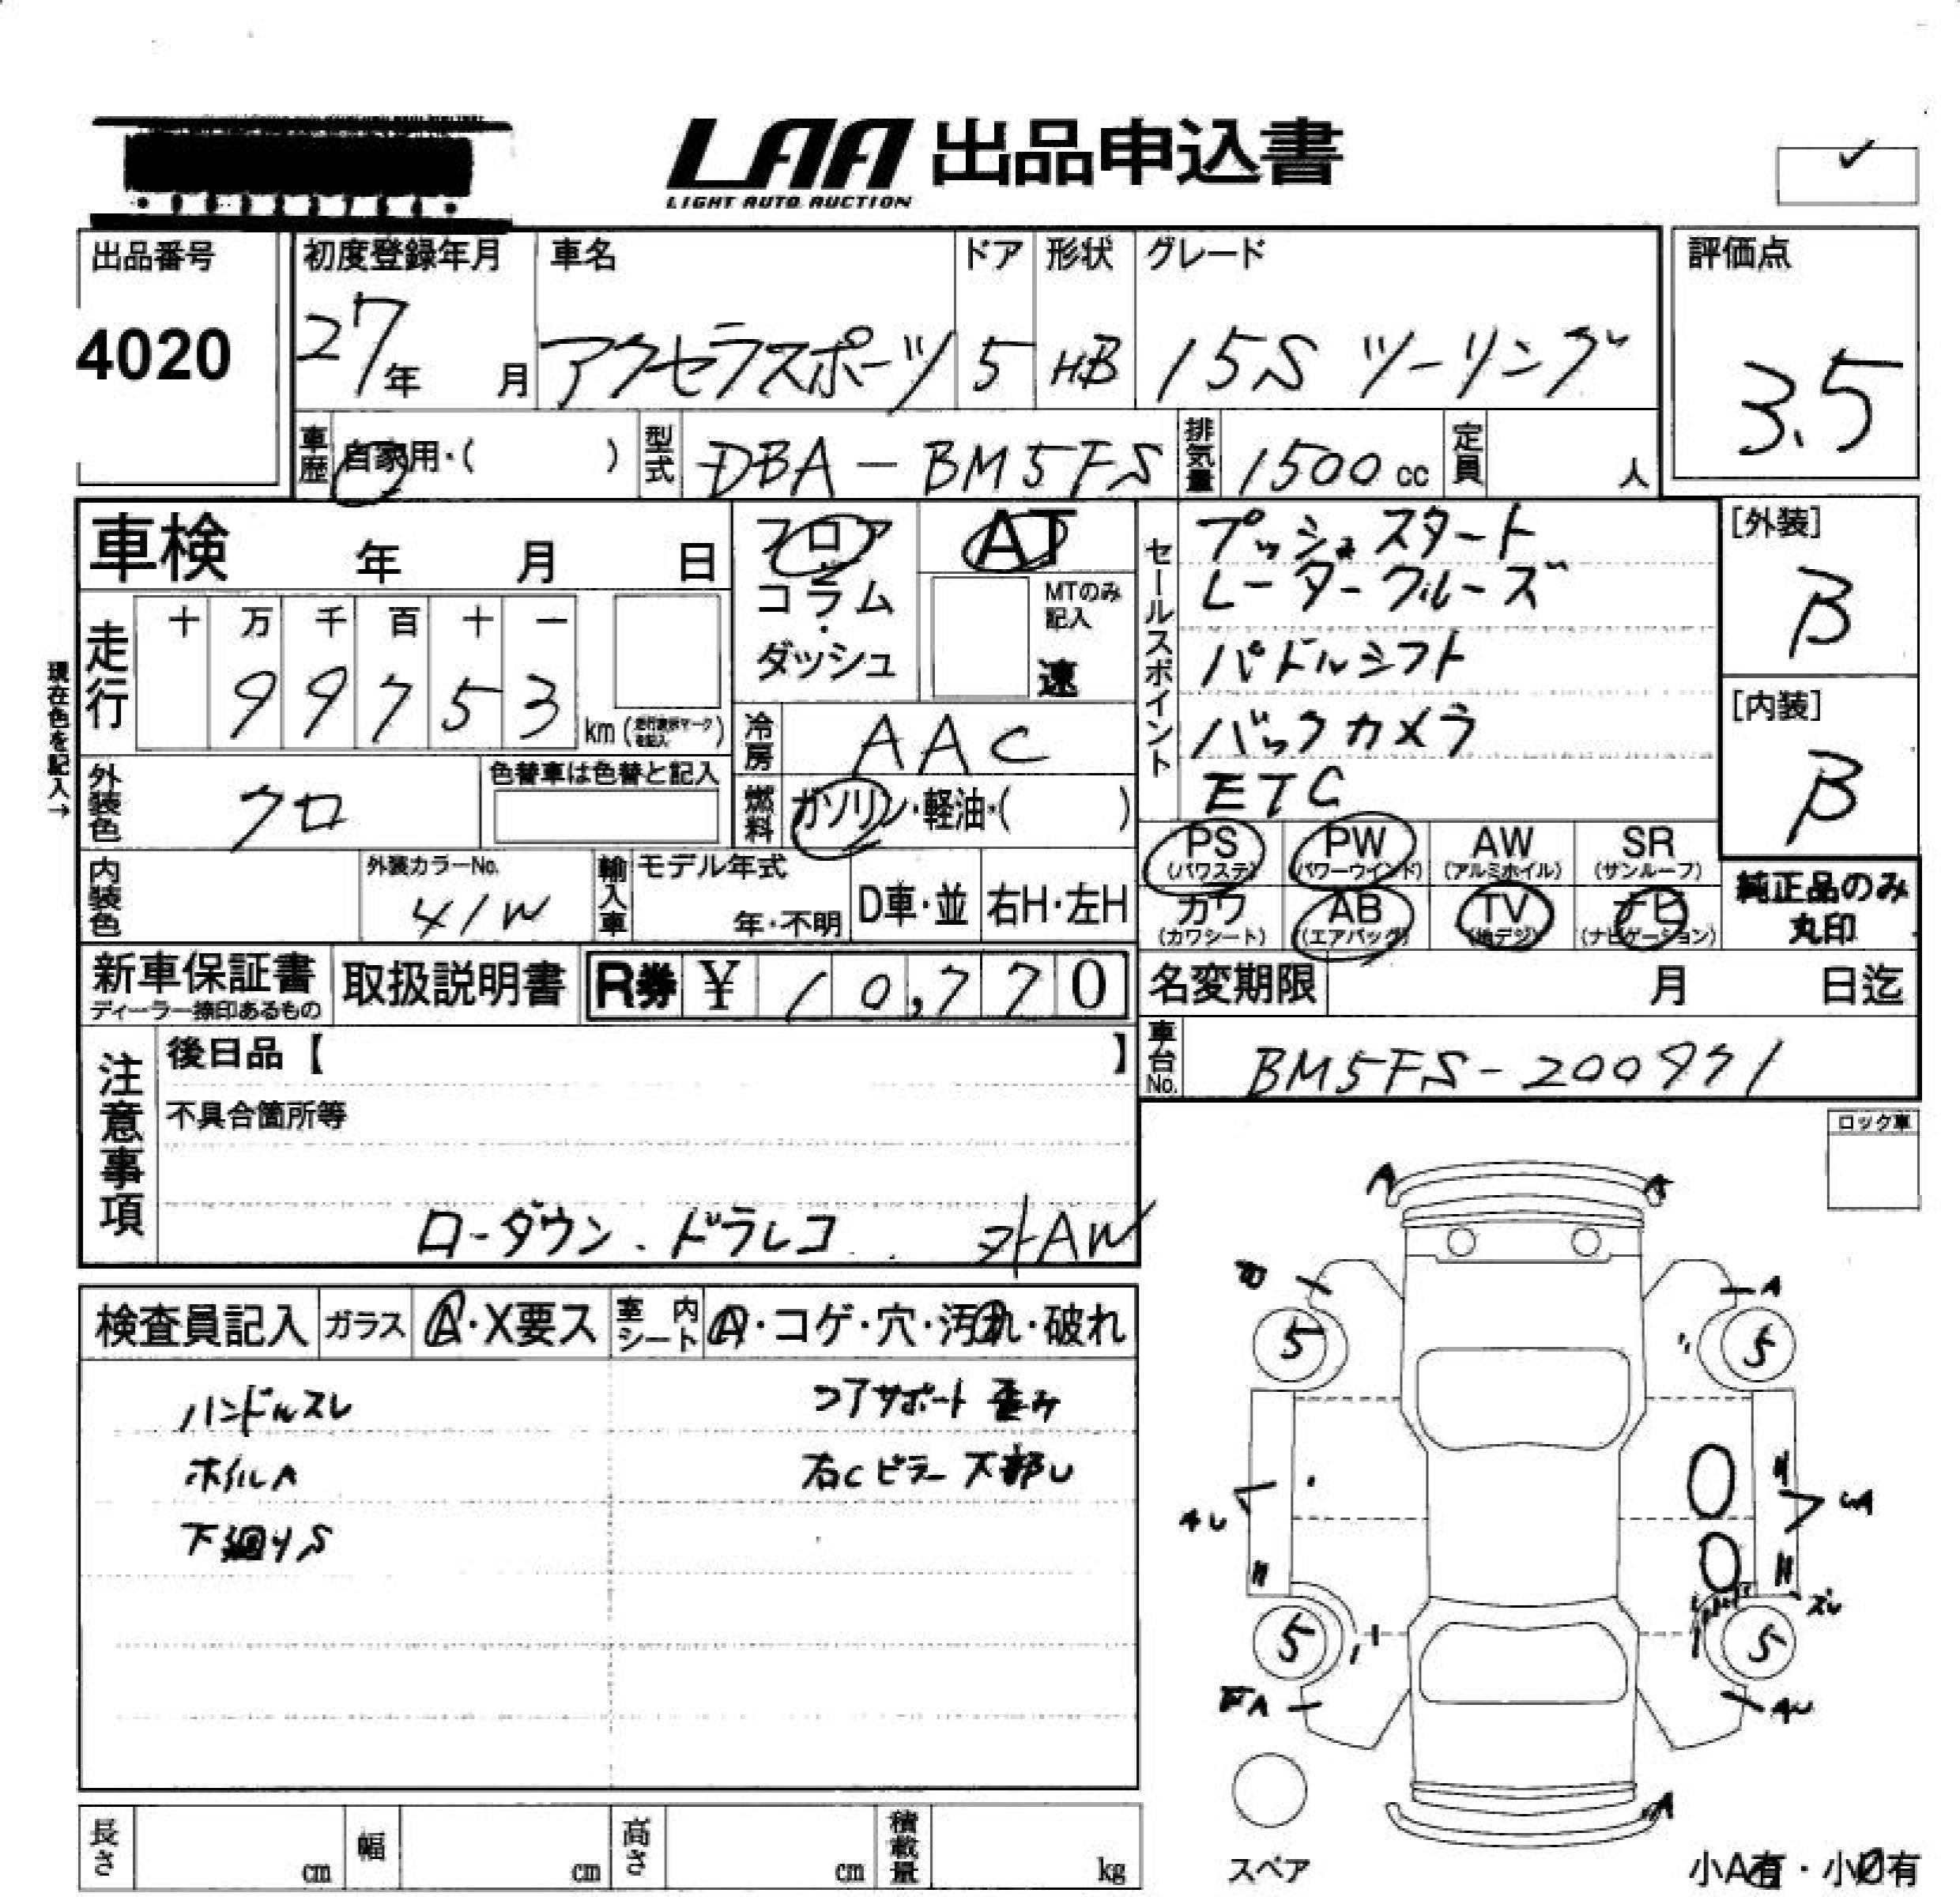 LAA 出品申込書
LIGHT AUTO AUCTION
✓
出品番号
4020
初度登録年月
27年 月
車名
アクセラスポーツ
ドア
5
形状
HB
グレード
15S ツーリング
評価点
3.5
車歴 自家用・( )
型式 DBA-BM5FS
排気量 1500cc
定員 人
車検 年 月 日
フロア
コラム
・
ダッシュ
AT
MTのみ
記入
速
現在色を記入→
走行
十 万 千 百 十 一
9 9 7 5 3
km (走行表示マークを記入)
冷房 AAC
燃料 ガソリン・軽油・( )
外装色 クロ
色替車は色替と記入
内装色
外装カラーNo.
41W
輸入車
モデル年式
年・不明
D車・並
右H・左H
セールスポイント
プッシュスタート
レーダークルーズ
パドルシフト
バックカメラ
ETC
[外装]
B
[内装]
B
PS (パワステ)
PW (パワーウインド)
AW (アルミホイル)
SR (サンルーフ)
カワ (カワシート)
AB (エアバッグ)
TV (地デジ)
ナビ (ナビゲーション)
純正品のみ
丸印
新車保証書
ディーラー捺印あるもの
取扱説明書
R券 ¥ 10,770
名変期限 月 日迄
車台No. BM5FS-200971
注意事項
後日品【 】
不具合箇所等
ローダウン、ドラレコ 、 外AW
ロック車
検査員記入
ガラス A・X要ス
室内シート A・コゲ・穴・汚れ・破れ
ハンドルスレ
ホイルA
下廻りS
コアサポート 歪み
右Cピラー下部U
A
A
A
5
5
AU
UA
ズレ
5
5
AU
A
スペア
小A有・小U有
長さ cm
幅 cm
高さ cm
積載量 kg